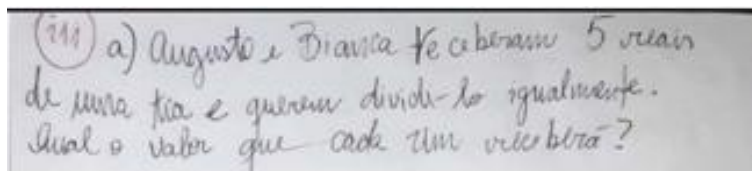 (iii) a) Augusto e Bianca receberam 5 reais
de uma tia e querem dividi-lo igualmente.
Qual o valor que cada um receberá?